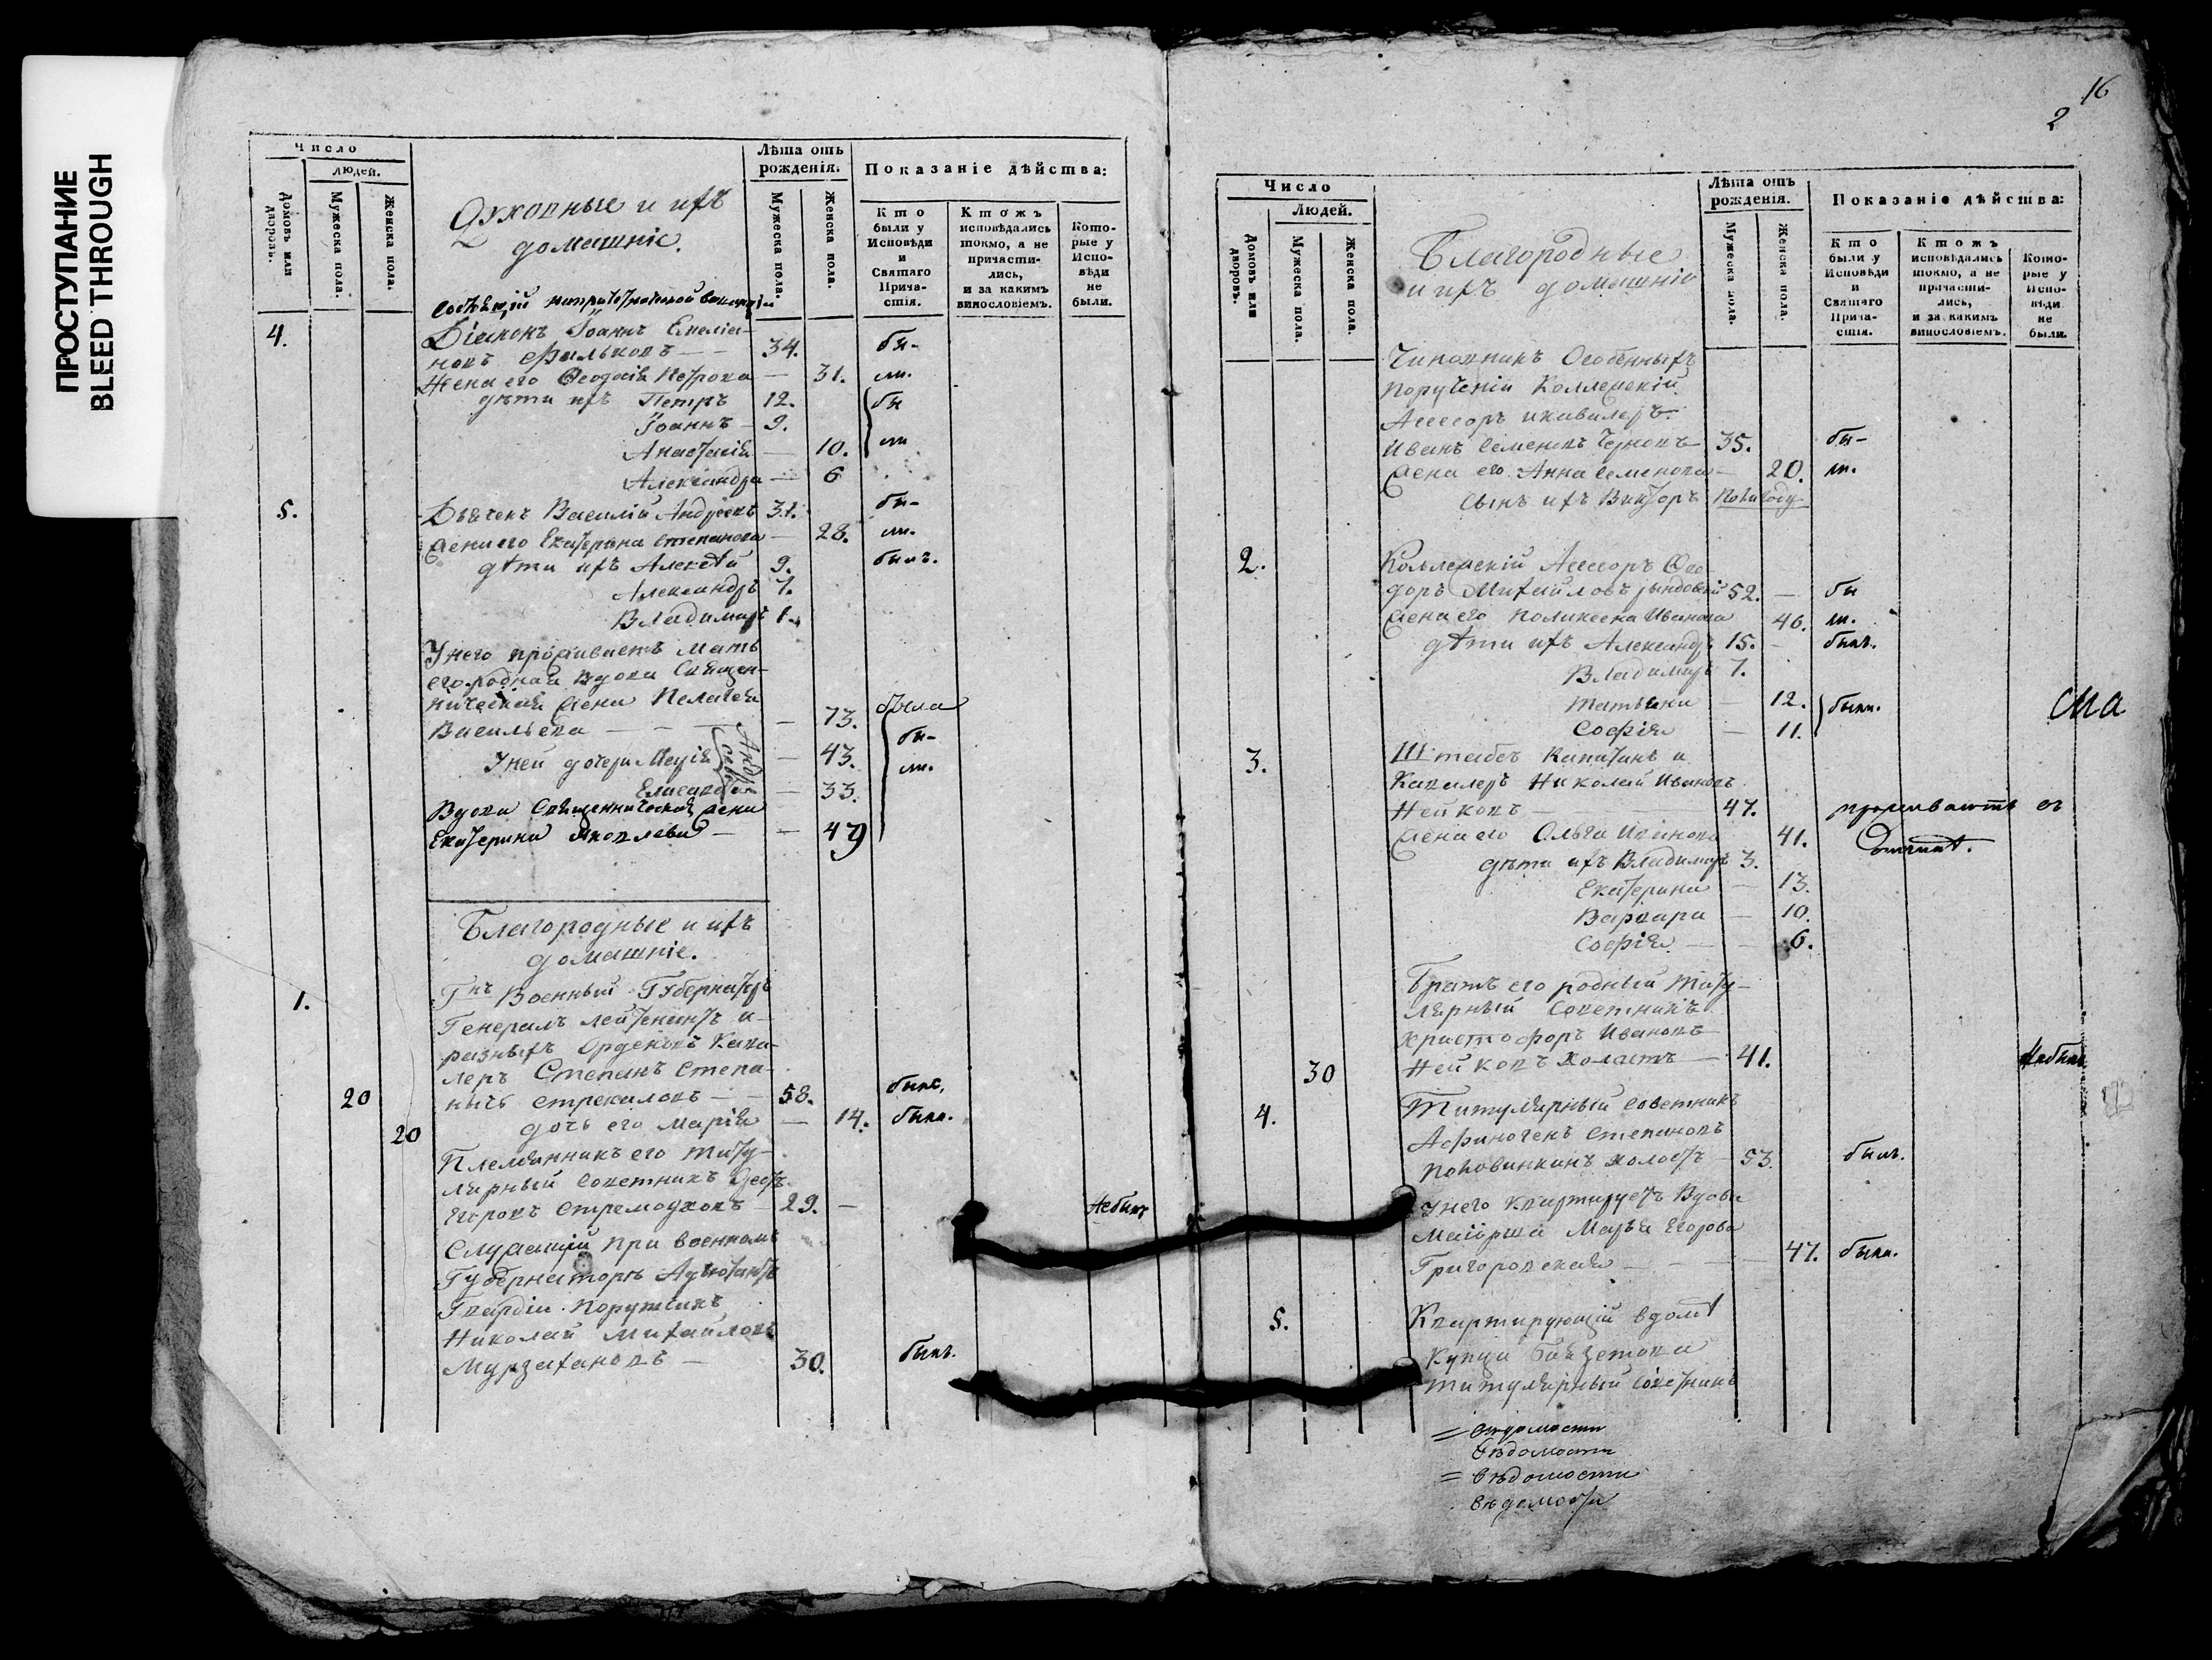 ПРОСТУПАНИЕ
BLEED THROUGH
Число
людей.
Домовъ или дворовъ.
Мужеска пола.
Женска пола.
Духовные и ихъ
домашніе.
Лѣта отъ рожденія.
Мужеска пола.
Женска пола.
Показаніе дѣйства:
Кто были у Исповѣди и Святаго Причастія.
Ктожъ исповѣдались токмо, а не причастились, и за какимъ винословіемъ.
Которые у Исповѣди не были.
4. Діаконъ Іоаннъ Емеліа-
новъ Фильковъ — — 34. бы-
Жена его Ѳеодосія Петрова — 31. ли.
дѣти ихъ Петръ 12. бы
Іоаннъ — 9.
Анастасія — 10. ли
Александра — 6
5. Дьячекъ Василій Андреевъ 31. бы-
Жена его Екатерина Степанова — 28. ли.
дѣти ихъ Алексѣй 9. былъ.
Александръ 7.
Владимиръ 1.
У него проживаетъ мать
его родная вдова Священ-
ническая жена Пелагея
Васильева — — — 73. была
У ней дочери Марія — 43. бы-
Елисавета — 33. ли.
Вдова Священническая жена
Екатерина Яковлева — — 49
Благородные и ихъ
домашніе.
1. Гнъ Военный Губернаторъ
Генералъ Лейтенантъ и
разныхъ Орденовъ Кава-
леръ Степанъ Степа-
20 нычь Стрекаловъ — — 58. былъ,
20 дочь его Марія — 14. была.
Племянникъ его Титу-
лярный Советникъ
Егоровъ Стремоуховъ — 29. — Небылъ
Служащій при военномъ
Губернаторѣ Адъютантъ
Гвардіи Поручикъ
Николай Михайловъ
Мурзахановъ — 30. былъ.
16
2
Число
Людей.
Домовъ или дворовъ.
Мужеска пола.
Женска пола.
Благородные
и ихъ домашніе
Лѣта отъ рожденія.
Мужеска пола.
Женска пола.
Показаніе дѣйства:
Кто были у Исповѣди и Святаго Причастія.
Ктожъ исповѣдались токмо, а не причастились, и за какимъ винословіемъ.
Которые у Исповѣди не были.
Чиновникъ Особенныхъ
Порученій Коллежскій
Ассесоръ и кавалеръ
Иванъ Семеновъ Черновъ 35. бы-
Жена его Анна Семенова — 20. ли.
Сынъ ихъ Викторъ полугоду
2. Коллежскій Ассесоръ Ѳео
доръ Михайловъ 52. — бы
Жена его Поликсена Иванова 46. ли.
дѣти ихъ Александръ 15. — былъ.
Владимиръ 7.
Татьяна — 12. были.
Софія — 11.
3. Штабсъ Капитанъ и
Кавалеръ Николай Ивановъ
Нейковъ — 47. проживаютъ въ
Жена его Ольга Иванова 41.
дѣти ихъ Владимиръ 3.
Екатерина — 13.
Варвара — 10.
Софія — — 6.
Братъ его родный Титу-
лярный Советникъ
Христофоръ Ивановъ
30 Нейковъ холостъ — 41. Небылъ
4. Титулярный Советникъ
Афиногенъ Степановъ
Половинкинъ холостъ — 53. былъ.
У него квартируетъ Вдова
Маіорша Марья Егорова
Григоровская — — — — 47. была.
5. Квартирующій вдомѣ
Купца Баязетова
Титулярный Советникъ
= вѣдомости
вѣдомости
= вѣдомости
вѣдомости